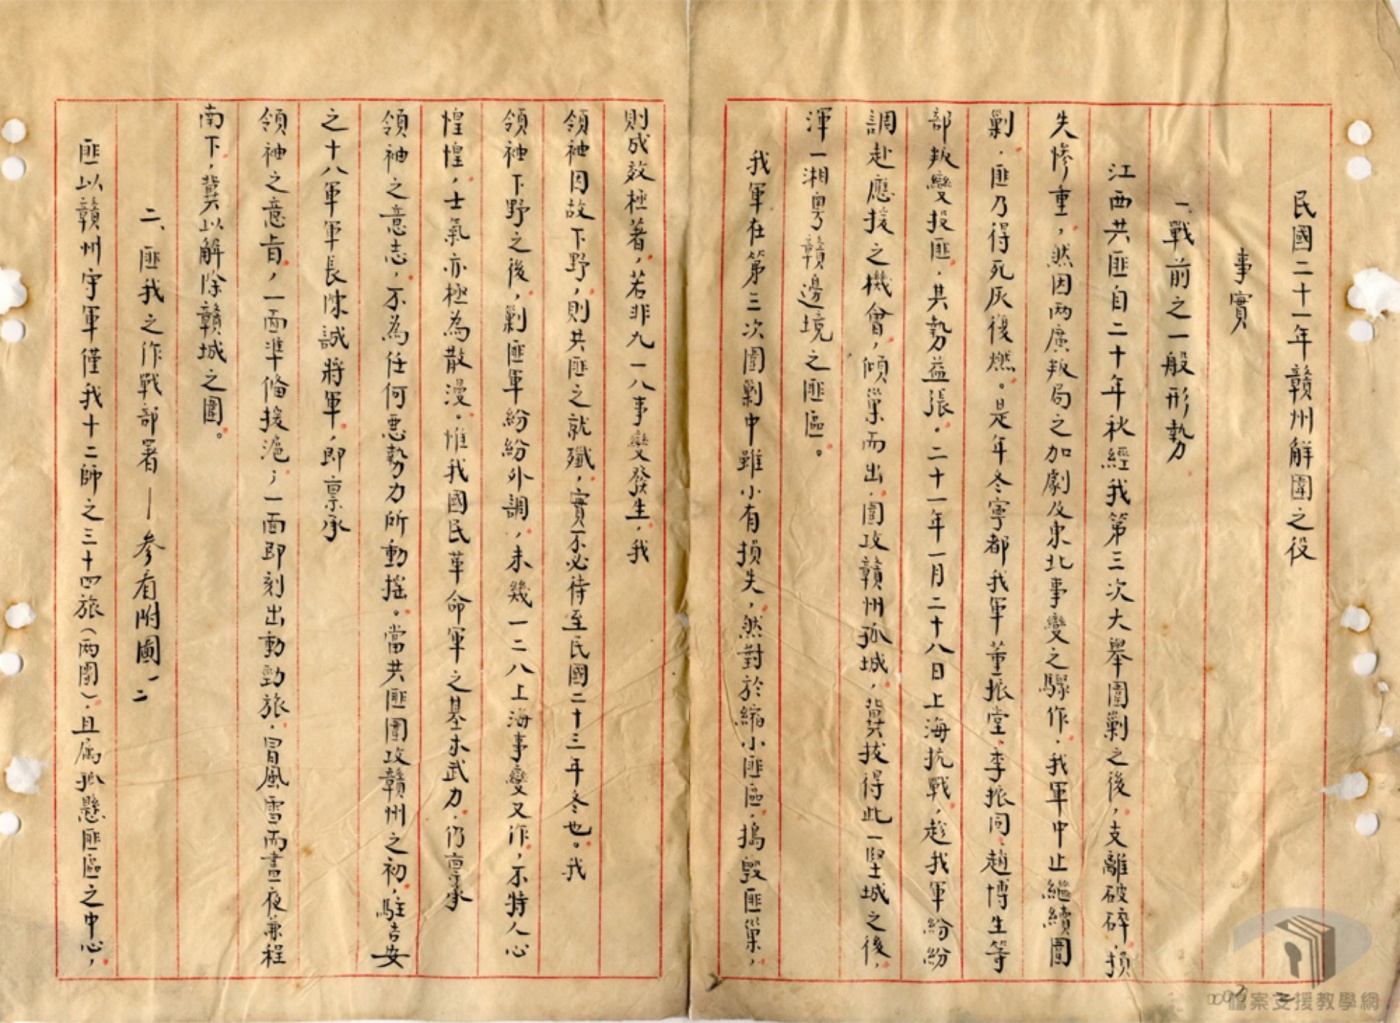 民國二十一年贛州解圍之役
事實
一、戰前之一般形勢
江西共匪自二十年秋經我第三次大舉圍剿之後，支離破碎，損
失慘重，然因兩廣叛局之加劇及東北事變之驟作，我軍中止繼續圍
剿，匪乃得死灰復燃。是年冬寧都我軍董振堂、李振同、趙博生等
部叛變投匪，其勢益張。二十一年一月二十八日上海抗戰，趁我軍紛紛
調赴應援之機會，傾巢而出，圍攻贛州孤城，冀拔得此一堅城之後，
渾一湘粵贛邊境之匪區。
我軍在第三次圍剿中雖小有損失，然對於縮小匪區，搗毀匪巢，
則成效極著，若非九一八事變發生，我
領袖因故下野，則共匪之就殲，實不必待至民國二十三年冬也。我
領袖下野之後，剿匪軍紛紛外調，未幾一二八上海事變又作，不特人心
惶惶，士氣亦極為散漫。惟我國民革命軍之基本武力，仍稟承
領袖之意志，不為任何惡勢力所動搖。當共匪圍攻贛州之初，駐吉安
之十八軍軍長陳誠將軍，即稟承
領袖之意旨，一面準備援滬；一面即刻出動勁旅，冒風雪雨晝夜兼程
南下，冀以解除贛城之圍。
二、匪我之作戰部署—參看附圖一、二
匪以贛州守軍僅我十二師之三十四旅（兩團），且屬孤懸匪區之中心，
檔案支援教學網